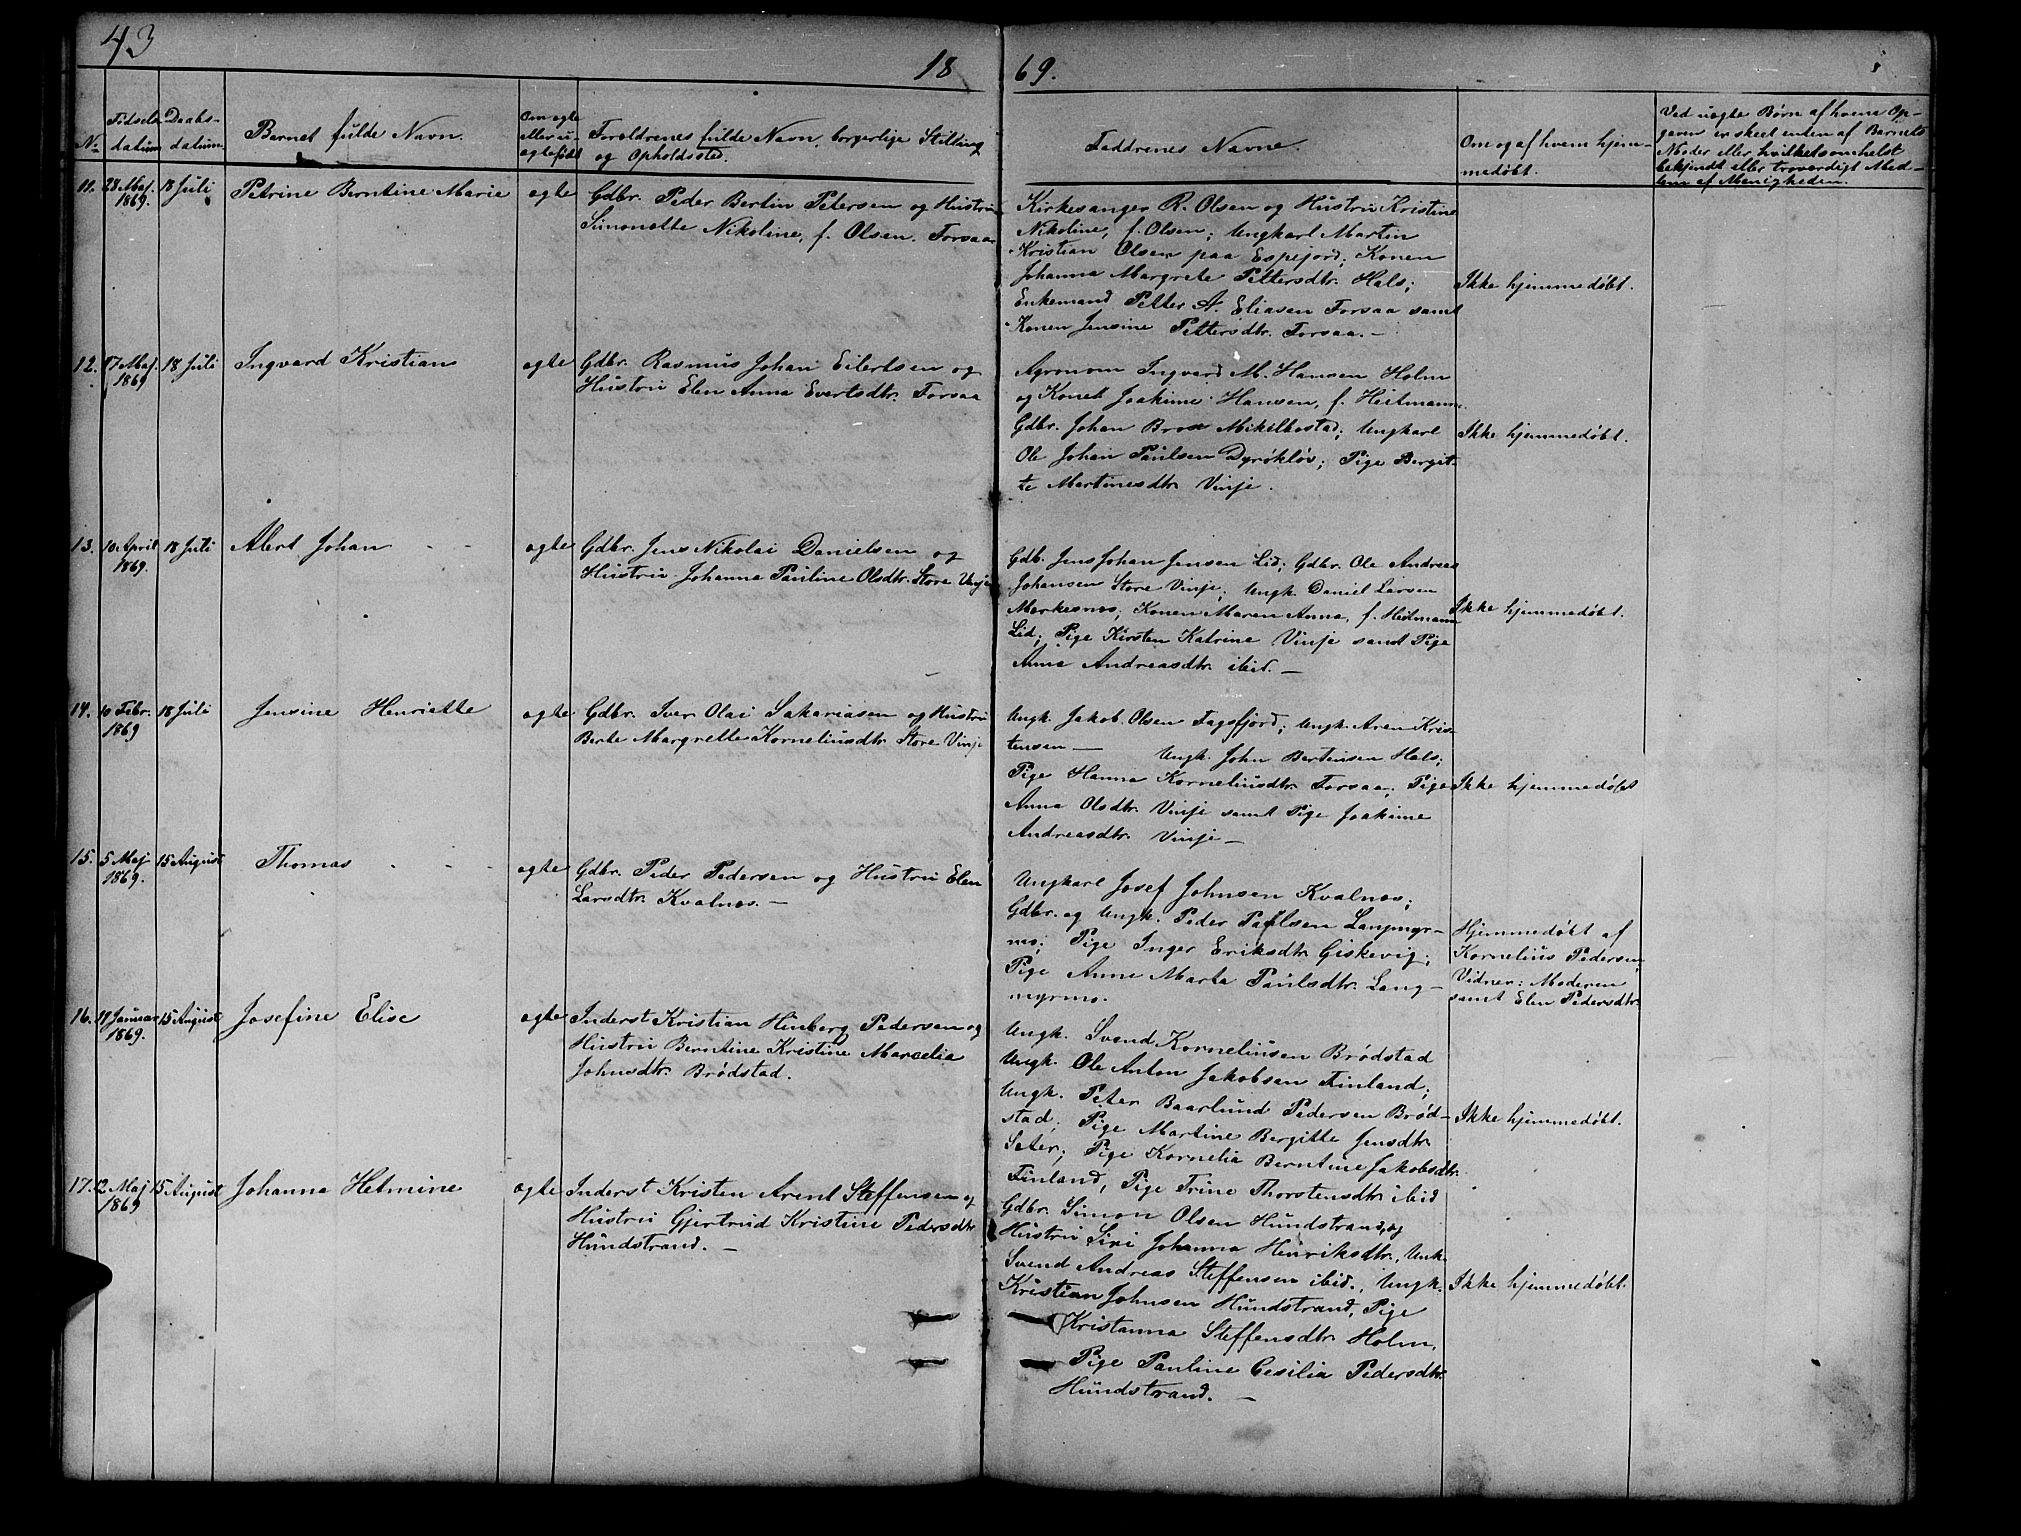 43
18 69.
No
Fødsels datum
Daabs-datum.
Barnet fulde Navn.
Om ægte
eller u-
ægtefødt
Forældrenes fulde Navn, borgerlige Stilling
og Opholdssted.
Faddrenes Navne.
Om og af hvem hjem-
medøbt.
Ved uægte Børn af hvem Op-
gaven er skeet enten af Barnets
Moder eller hvilketsomhelst
bekjendt eller troværdigt Med-
lem af Menigheden.
11. 28 Maj. 1869. 18 Juli Petrine Berntine Marie ægte
Gdbr. Peder Bertin Petersen og Hustru
Simonette Nikoline, f. Olsen. Forsaa
Kirkesanger R. Olsen og Hustru Kristine
Nikoline, f. Olsen; Ungkarl Martin
Kristian Olsen paa Espejord; Konen
Johanna Margrete Pettersdtr. Hals;
Enkemand Petter A. Eliasen Forsaa samt
Konen Jensine Pettersdtr. Forsaa. —
Ikke hjemmedøbt.
12. 17 Maj. 1869 18 Juli Ingvard Kristian ægte
Gdbr. Rasmus Johan Eilertsen og
Hustru Elen Anna Evertsdtr. Forsaa
Agronom Ingvard M. Hansen Holm
og Konen Joakime Hansen, f. Heitmann
Gdbr. Johan Brox Mikelbostad; Ungkarl
Ole Johan Paulsen Dyrøkløv; Pige Bergit-
te Martinesdtr Vinje.
Ikke hjemmedøbt.
13. 10 April 1869. 18 Juli Albert Johan ægte
Gdbr. Jens Nikolai Danielsen og
Hustru Johanna Pauline Olsdtr. Store Vinje
Gdb. Jens Johan Jensen Lid; Gdbr. Ole Andreas
Johansen Store Vinje; Ungk. Daniel Larsen
Markesnæs; Konen Maren Anna, f. Heitmann
Lid; Pige Kirsten Katrine Vinje samt Pige
Anna Andreasdtr. ibid. —
Ikke hjemmedøbt.
14. 10 Febr. 1869 18 Juli Jensine Henriette ægte
Gdbr. Iver Olai Sakariasen og Hustru
Berte Margrette Korneliusdtr. Store Vinje
Ungk. Jakob Olsen Fagsfjord; Ungk. Aren Kris-
tensen — Ungk. John Berteusen Hals;
Pige Hanna Korneliusdtr. Forsaa; Pige
Anna Olsdtr. Vinje samt Pige Joakime
Andreasdtr. Vinje —
Ikke hjemmedøbt
15. 5 Maj 1869. 15 August Thomas ægte
Gdbr. Peder Pedersen og Hustru Elen
Larsdtr. Kvalnæs. —
Ungkarl Josef Johnsen Kvalnæs;
Gdbr. og Ungk. Peder Paulsen Langmyr-
mo; Pige Inger Eriksdtr. Giskevig;
Pige Anne Marta Paulsdtr. Lang-
myrmo.
Hjemmedøbt af
Kornelius Pedersen;
Vidner: Moderen
samt Elen Pedersdtr.
16. 11 Januar 1869. 15 August Josefine Elise ægte
Inderst Kristian Hinberg Pedersen og
Hustru Berntine Kristine Marselia
Johnsdtr. Brødstad.
Ungk. Svend Korneliusen Brødstad
Ungk. Ole Anton Jakobsen Finland;
Ungk. Peter Baarlund Pedersen Brød-
stad; Pige Martine Bergitte Jensdtr.
Seter; Pige Kornelia Berntine Jakobsdtr.
Finland, Pige Trine Thorstensdtr. ibid
Ikke hjemmedøbt.
17. 12 Maj 1869 15 August Johanna Helmine ægte
Inderst Kristen Arent Steffensen og
Hustru Gjertrud Kristine Pedersdtr.
Hundstrand. —
Gdbr. Simon Olsen Hundstrand, og
Hustru Siri Johanna Henriksdtr., Unk.
Svend Andreas Steffensen ibid., Ungk.
Kristian Johnsen Hundstrand, Pige
Kristanna Steffensdtr. Holm,
Pige Pauline Cesilia Pedersdtr.
Hundstrand. —
Ikke hjemmedøbt.